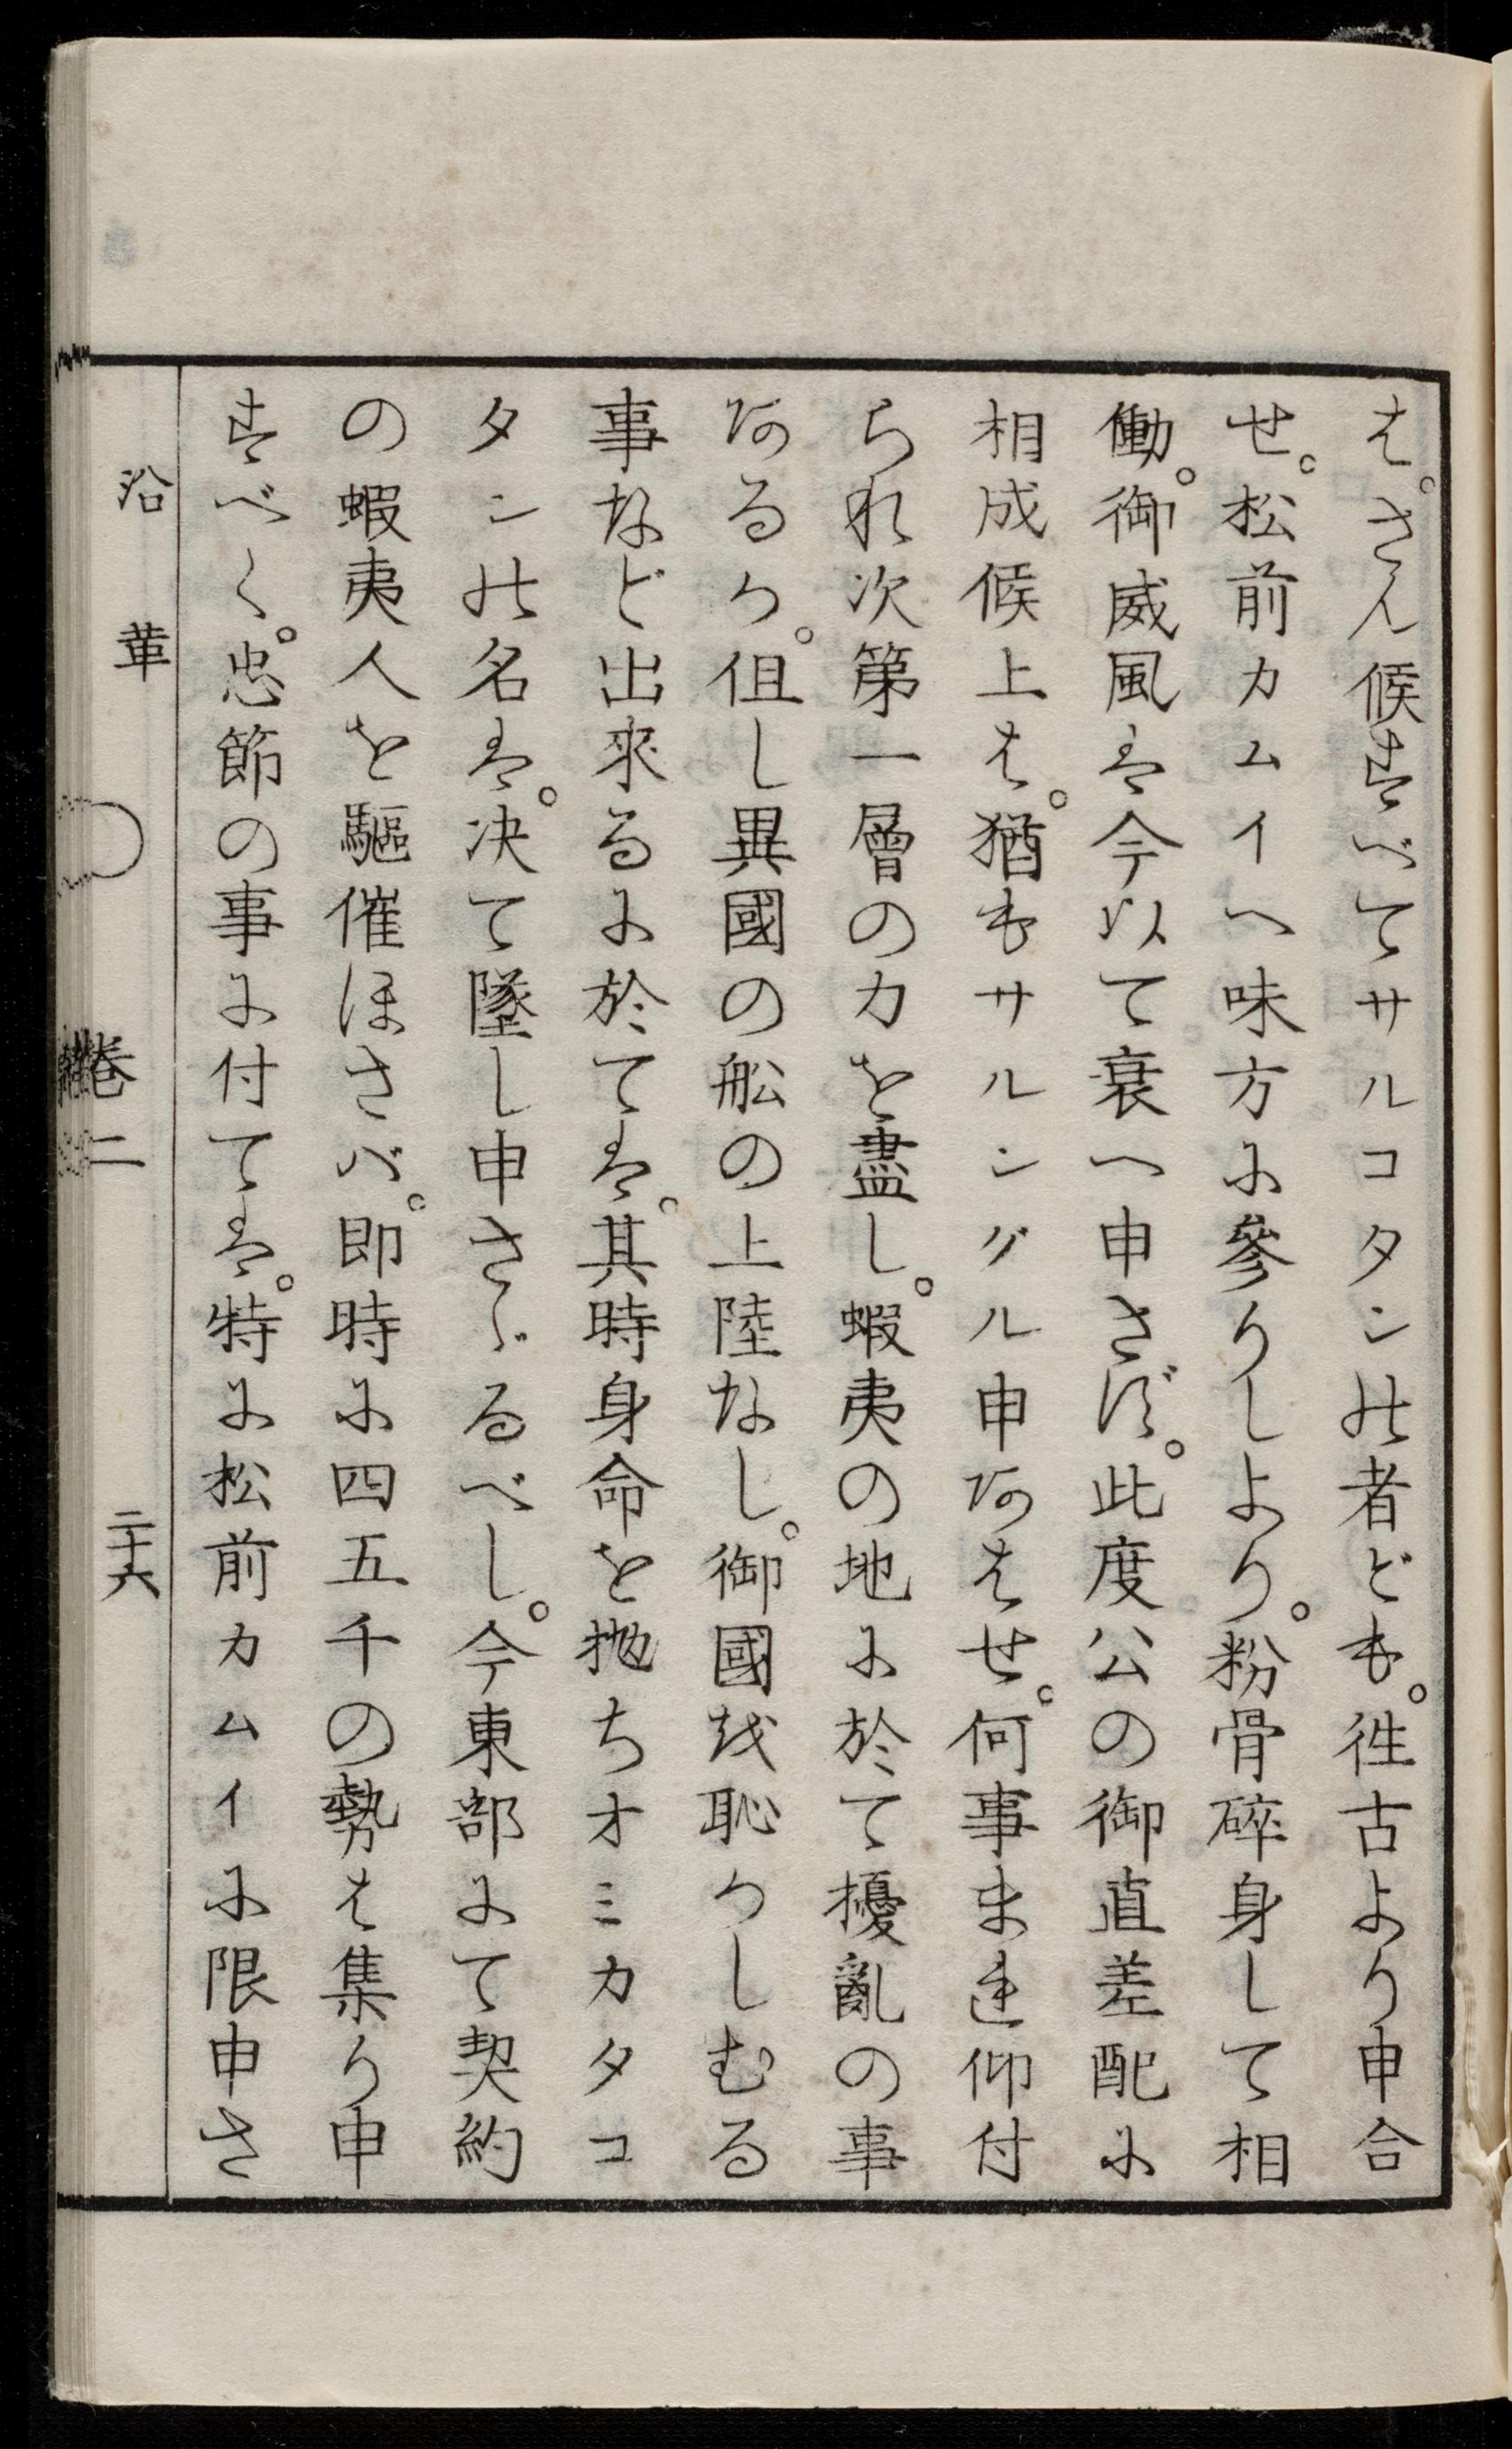 は。さん候すべてサルコタンの者ども。徃古より申合
せ。松前カムイへ味方に參りしより。粉骨碎身して相
働。御威風は今以て衰へ申さず。此度公の御直差配に
相成候上は。猶もサルングル申あはせ。何事まれ仰付
られ次第一層の力を盡し。蝦夷の地に於て擾亂の事
あるか。但し異國の舩の上陸なし。御國を恥かしむる
事など出來るに於ては。其時身命を抛ちオミカタコ
タンの名は。决て墜し申さゞるべし。今東部にて契約
の蝦夷人を驅催ほさバ。即時に四五千の勢は集り申
すべく。忠節の事に付ては。特に松前カムイに限申さ
沿革 卷二 二十六